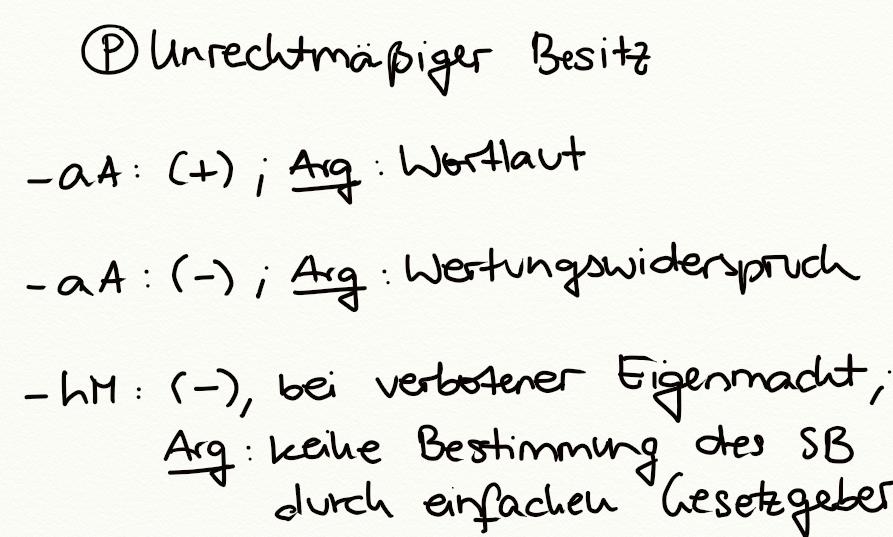 Ⓟ Unrechtmäßiger Besitz
- aA: (+) ; Arg: Wortlaut
- aA: (-) ; Arg: Wertungswiderspruch
- hM: (-), bei verbotener Eigenmacht;
Arg: keine Bestimmung des SB
durch einfachen Gesetzgeber